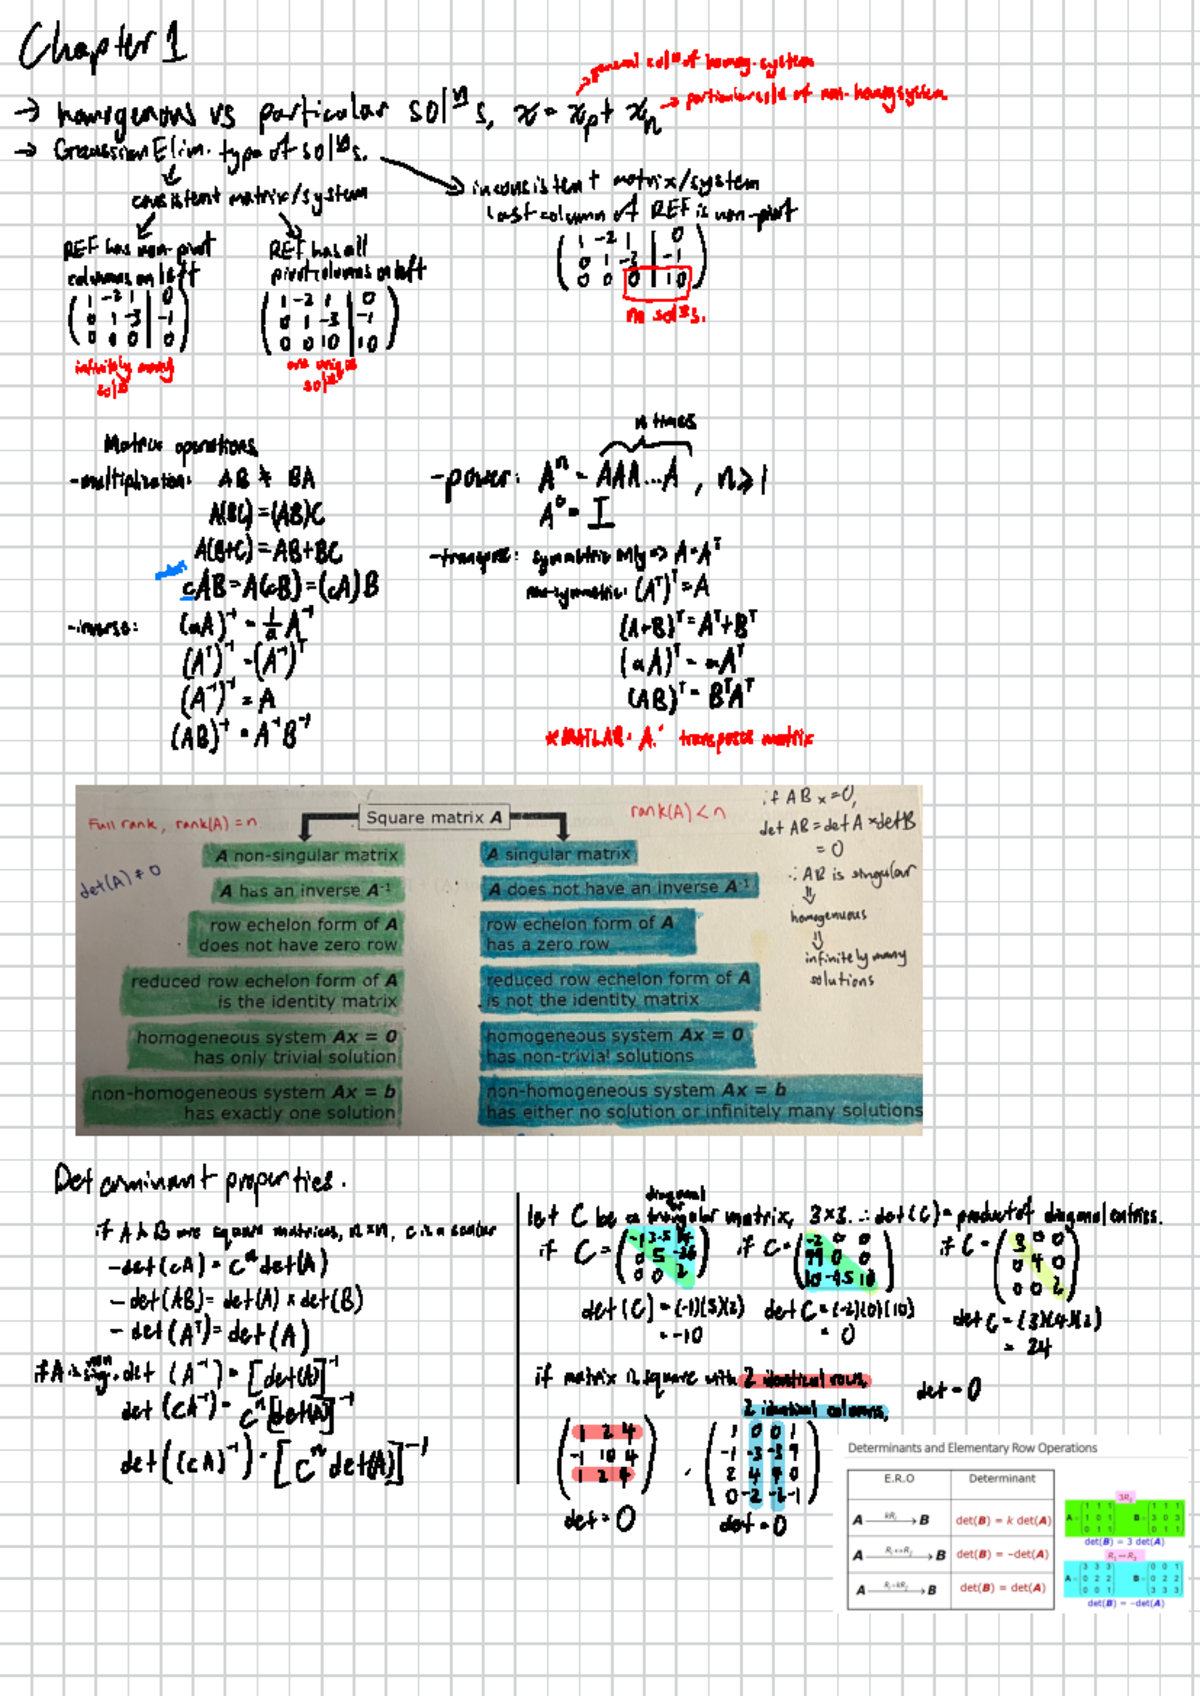 Chapter 1
general solⁿ of homog. system
→ homogenous vs particular solⁿs, x = xₚ + xₕ → particular solⁿ of non-homog system
→ Gaussian Elim. type of solⁿs.
consistent matrix/system
inconsistent matrix/system
last column of REF is non-pivot
REF has non-pivot
columns on left
REF has all
pivot columns on left
1 -2 1 | 0
0 1 -3 | -1
0 0 0 | 10
no solⁿs.
1 -2 1 | 0
0 1 -3 | -1
0 0 0 | 0
infinitely many
solⁿ
1 -2 1 | 0
0 1 -3 | -1
0 0 10 | 10
one unique
solⁿ
Matrix operations
-multiplication: AB ≠ BA
A(BC) = (AB)C
A(B+C) = AB+BC
cAB = A(cB) = (cA)B
-inverse: (aA)⁻¹ = 1/a A⁻¹
(Aᵀ)⁻¹ = (A⁻¹)ᵀ
(A⁻¹)⁻¹ = A
(AB)⁻¹ = A⁻¹B⁻¹
n times
-power: Aⁿ = AAA...A, n≥1
A⁰ = I
-transpose: symmetric only => A=Aᵀ
non-symmetric: (Aᵀ)ᵀ = A
(A+B)ᵀ = Aᵀ+Bᵀ
(aA)ᵀ = aAᵀ
(AB)ᵀ = BᵀAᵀ
*MATLAB: A.' transposes matrix
Square matrix A
Full rank, rank(A) = n
rank(A) < n
det(A) ≠ 0
A non-singular matrix
A has an inverse A⁻¹
row echelon form of A
does not have zero row
reduced row echelon form of A
is the identity matrix
homogeneous system Ax = 0
has only trivial solution
non-homogeneous system Ax = b
has exactly one solution
A singular matrix
A does not have an inverse A⁻¹
row echelon form of A
has a zero row
reduced row echelon form of A
is not the identity matrix
homogeneous system Ax = 0
has non-trivial solutions
non-homogeneous system Ax = b
has either no solution or infinitely many solutions
if ABx=0,
det AB = det A × det B
= 0
∴ AB is singular
⇓
homogenuous
⇓
infinitely many
solutions
Determinant properties.
if A & B are square matrices, n×n, c is a scalar
- det(cA) = cⁿ det(A)
- det(AB) = det(A) × det(B)
- det(Aᵀ) = det(A)
if A is non sing. det (A⁻¹) = [det(A)]⁻¹
det (cA⁻¹) = cⁿ[det(A)]⁻¹
det((cA)⁻¹) = [cⁿ det(A)]⁻¹
diagonal
or
let C be a triangular matrix, 3×3. ∴ det(C) = product of diagonal entries.
if C =
0 0 2
det(C) = (-1)(5)(2)
= -10
if C =
-2 0 0
99 0 0
10 -45 10
det C = (-2)(0)(10)
= 0
if C =
3 0 0
0 4 0
0 0 2
det C = (3)(4)(2)
= 24
if matrix is square with 2 identical rows,
2 identical columns,
det = 0
1 2 4
-1 10 4
1 2 4
det = 0
1 0 0 1
-1 -3 -3 9
2 4 4 0
0 -2 -2 -1
det = 0
Determinants and Elementary Row Operations
E.R.O Determinant
A kRᵢ→ B det(B) = k det(A)
A Rᵢ↔Rⱼ→ B det(B) = -det(A)
A Rᵢ+kRⱼ→ B det(B) = det(A)
3R₂
A =
1 1 1
1 0 1
0 1 1
B =
1 1 1
3 0 3
0 1 1
det(B) = 3 det(A)
R₁↔R₃
A =
3 3 3
0 2 2
0 0 1
B =
0 0 1
0 2 2
3 3 3
det(B) = -det(A)